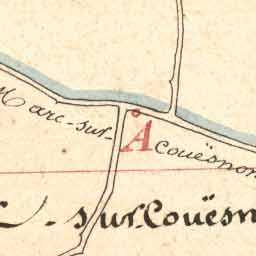 Marc-sur-
A
Couësnon
sur-Couësn